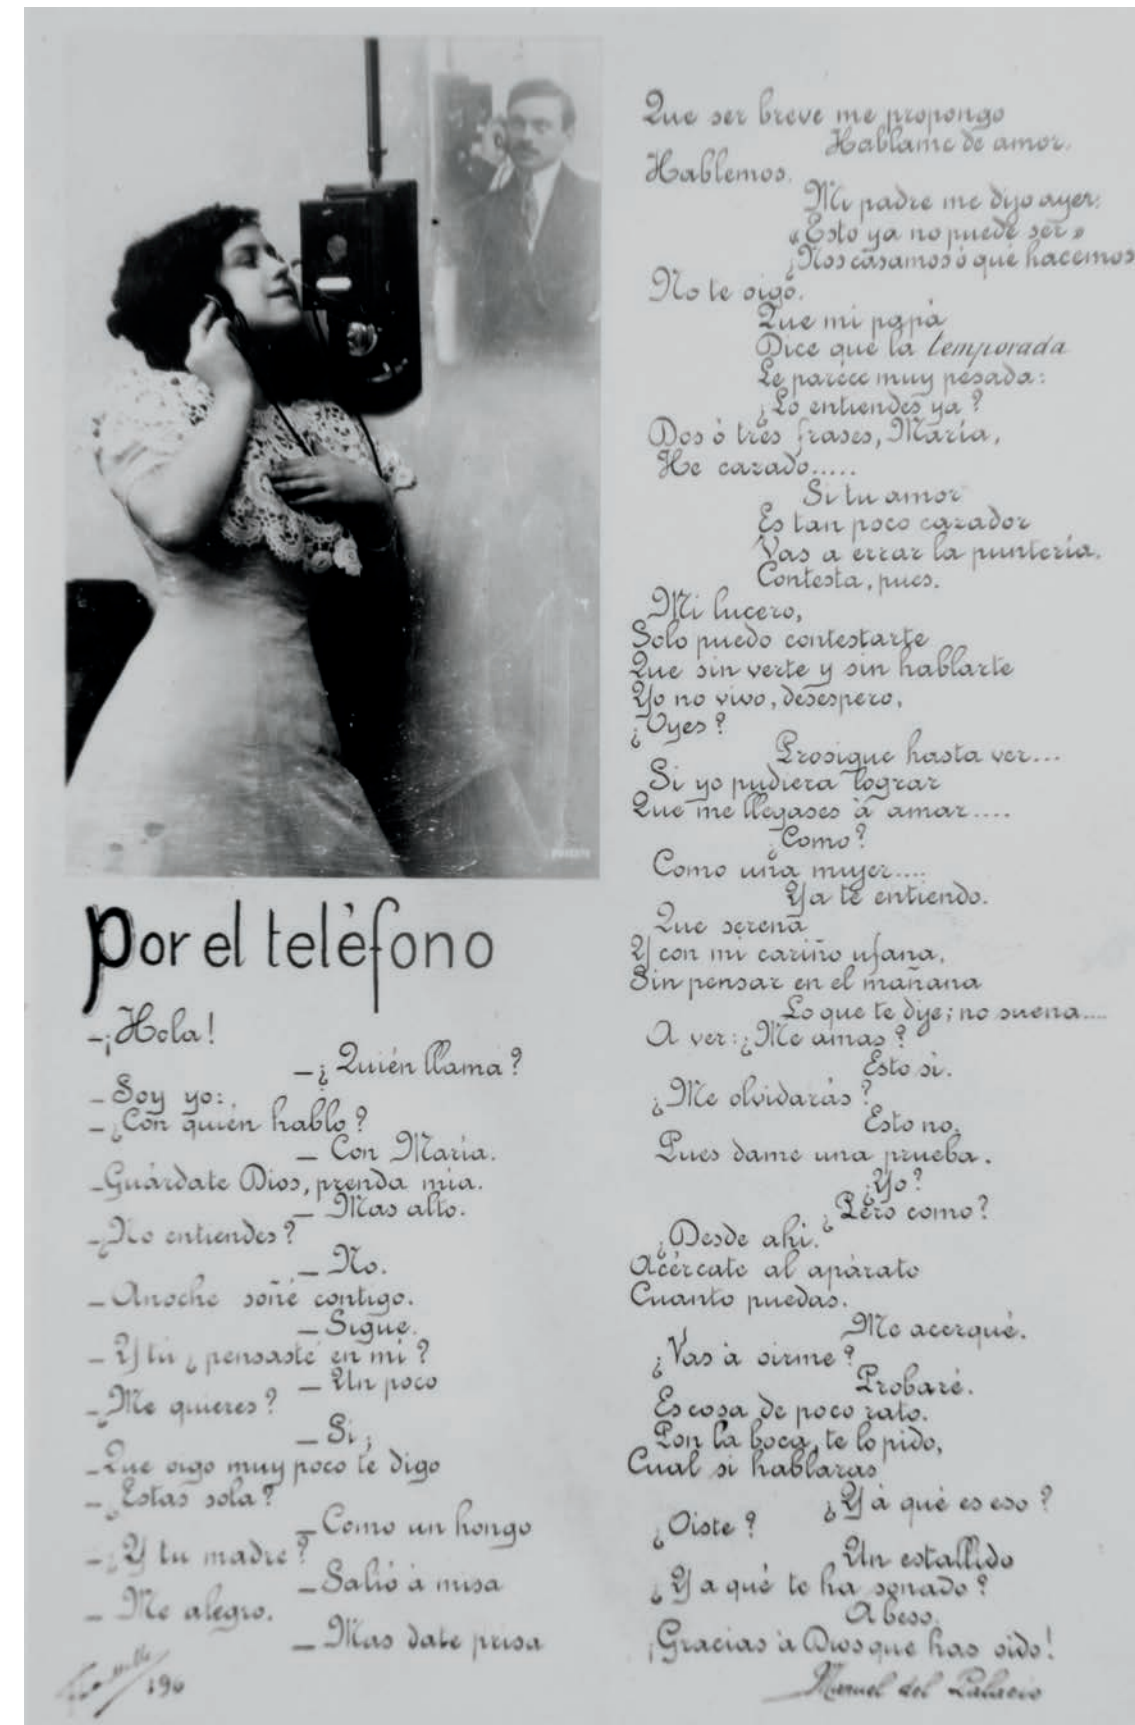 Por el telèfono
–¡Hola!
–¿Quién llama?
– Soy yo:
– ¿Con quién hablo?
– Con María.
–Guárdate Dios, prenda mía.
– Mas alto.
–¿No entiendes?
– No.
– Anoche soñé contigo.
– Sigue.
– Y tú ¿pensaste en mi?
– Un poco
–¿Me quieres?
– Si;
–Que oigo muy poco te digo
– ¿Estas sola?
– Como un hongo
–¿Y tu madre?
– Salió à misa
– Me alegro.
– Mas date prisa
196
Que ser breve me propongo
Hablame de amor.
Hablemos.
Mi padre me dijo ayer:
«Esto ya no puede ser»
¿Nos casamos ó qué hacemos
No te oigo.
Que mi papá
Dice que la temporada
Le parece muy pesada:
¿Lo entiendes ya?
Dos ó tres frases, María,
He cazado.....
Si tu amor
Es tan poco cazador
Vas a errar la puntería.
Contesta, pues.
Mi lucero,
Solo puedo contestarte
Que sin verte y sin hablarte
Yo no vivo, desespero,
¿Oyes?
Prosigue hasta ver...
Si yo pudiera lograr
Que me llegases à amar....
¿Como?
Como una mujer....
Ya te entiendo.
Que serena
Y con mi cariño ufana,
Sin pensar en el mañana
Lo que te dije; no suena....
A ver: ¿Me amas?
Esto si.
¿Me olvidarás?
Esto no.
Pues dame una prueba.
¿Yo?
¿Pero como?
¿Desde ahi.
Acércate al aparato
Cuanto puedas.
Me acerqué.
¿Vas à oirme?
Probaré.
Es cosa de poco rato.
Pon la boca, te lo pido,
Cual si hablaras
¿Y à qué es eso?
¿Oiste?
Un estallido
¿Y a qué te ha sonado?
A beso.
¡Gracias à Dios que has oido!
Manuel del Palacio